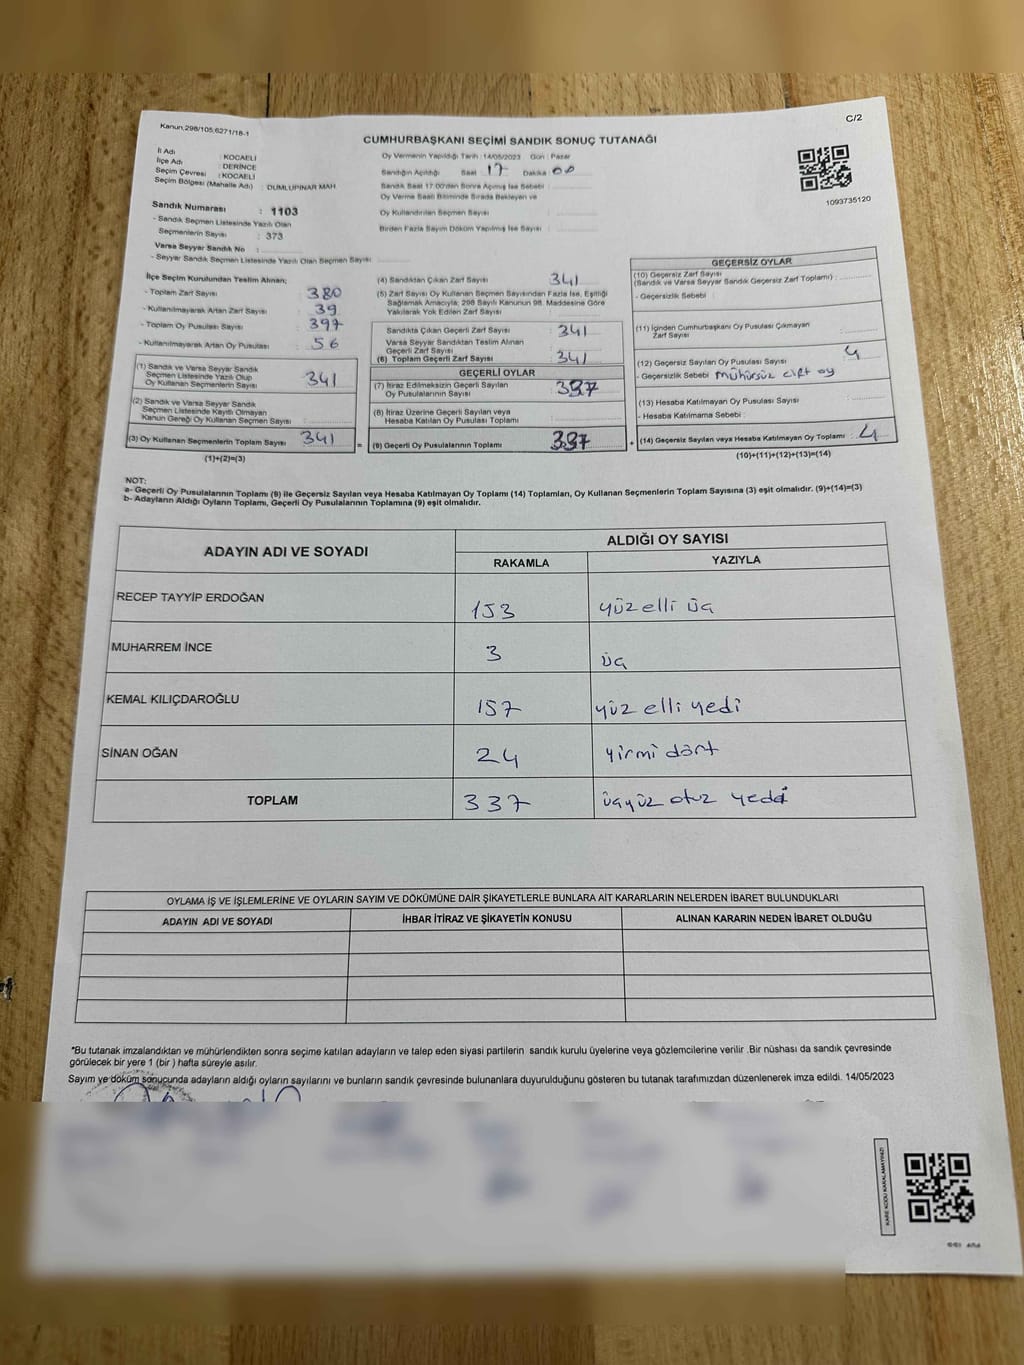 Kanun;298/105;6271/18-1
C/2
CUMHURBAŞKANI SEÇİMİ SANDIK SONUÇ TUTANAĞI
İl Adı : KOCAELİ
İlçe Adı : DERİNCE
Seçim Çevresi : KOCAELİ
Seçim Bölgesi (Mahalle Adı) : DUMLUPINAR MAH
Sandık Numarası : 1103
- Sandık Seçmen Listesinde Yazılı Olan
Seçmenlerin Sayısı : 373
Varsa Seyyar Sandık No :
- Seyyar Sandık Seçmen Listesinde Yazılı Olan Seçmen Sayısı :
Oy Vermenin Yapıldığı Tarih :14/05/2023 Gün : Pazar
Sandığın Açıldığı Saat : 17 Dakika : 00
Sandık Saat 17:00'den Sonra Açılmış İse Sebebi :
Oy Verme Saati Bitiminde Sırada Bekleyen ve
Oy Kullandırılan Seçmen Sayısı :
Birden Fazla Sayım Döküm Yapılmış İse Sayısı :
1093735120
İlçe Seçim Kurulundan Teslim Alınan;
- Toplam Zarf Sayısı : 380
- Kullanılmayarak Artan Zarf Sayısı : 39
- Toplam Oy Pusulası Sayısı : 397
- Kullanılmayarak Artan Oy Pusulası : 56
(1) Sandık ve Varsa Seyyar Sandık
Seçmen Listesinde Yazılı Olup
Oy Kullanan Seçmenlerin Sayısı : 341
(2) Sandık ve Varsa Seyyar Sandık
Seçmen Listesinde Kayıtlı Olmayan
Kanun Gereği Oy Kullanan Seçmen Sayısı :
(3) Oy Kullanan Seçmenlerin Toplam Sayısı : 341 =
(1)+(2)=(3)
(4) Sandıktan Çıkan Zarf Sayısı : 341
(5) Zarf Sayısı Oy Kullanan Seçmen Sayısından Fazla İse, Eşitliği
Sağlamak Amacıyla; 298 Sayılı Kanunun 98. Maddesine Göre
Yakılarak Yok Edilen Zarf Sayısı :
Sandıkta Çıkan Geçerli Zarf Sayısı : 341
Varsa Seyyar Sandıktan Teslim Alınan
Geçerli Zarf Sayısı :
(6) Toplam Geçerli Zarf Sayısı : 341
GEÇERLİ OYLAR
(7) İtiraz Edilmeksizin Geçerli Sayılan
Oy Pusulalarının Sayısı : 337
(8) İtiraz Üzerine Geçerli Sayılan veya
Hesaba Katılan Oy Pusulası Toplamı :
(9) Geçerli Oy Pusulalarının Toplamı : 337 +
GEÇERSİZ OYLAR
(10) Geçersiz Zarf Sayısı
(Sandık ve Varsa Seyyar Sandık Geçersiz Zarf Toplamı) :
- Geçersizlik Sebebi :
(11) İçinden Cumhurbaşkanı Oy Pusulası Çıkmayan
Zarf Sayısı :
(12) Geçersiz Sayılan Oy Pusulası Sayısı : 4
- Geçersizlik Sebebi : mühürsüz çift oy
(13) Hesaba Katılmayan Oy Pusulası Sayısı :
- Hesaba Katılmama Sebebi :
(14) Geçersiz Sayılan veya Hesaba Katılmayan Oy Toplamı : 4
(10)+(11)+(12)+(13)=(14)
NOT:
a- Geçerli Oy Pusulalarının Toplamı (9) ile Geçersiz Sayılan veya Hesaba Katılmayan Oy Toplamı (14) Toplamları, Oy Kullanan Seçmenlerin Toplam Sayısına (3) eşit olmalıdır. (9)+(14)=(3)
b- Adayların Aldığı Oyların Toplamı, Geçerli Oy Pusulalarının Toplamına (9) eşit olmalıdır.
ADAYIN ADI VE SOYADI
ALDIĞI OY SAYISI
RAKAMLA YAZIYLA
RECEP TAYYİP ERDOĞAN 153 yüz elli üç
MUHARREM İNCE 3 üç
KEMAL KILIÇDAROĞLU 157 yüz elli yedi
SİNAN OĞAN 24 yirmi dört
TOPLAM 337 üçyüz otuz yedi
OYLAMA İŞ VE İŞLEMLERİNE VE OYLARIN SAYIM VE DÖKÜMÜNE DAİR ŞİKAYETLERLE BUNLARA AİT KARARLARIN NELERDEN İBARET BULUNDUKLARI
ADAYIN ADI VE SOYADI İHBAR İTİRAZ VE ŞİKAYETİN KONUSU ALINAN KARARIN NEDEN İBARET OLDUĞU
*Bu tutanak imzalandıktan ve mühürlendikten sonra seçime katılan adayların ve talep eden siyasi partilerin sandık kurulu üyelerine veya gözlemcilerine verilir .Bir nüshası da sandık çevresinde
görülecek bir yere 1 (bir ) hafta süreyle asılır.
Sayım ve döküm sonucunda adayların aldığı oyların sayılarını ve bunların sandık çevresinde bulunanlara duyurulduğunu gösteren bu tutanak tarafımızdan düzenlenerek imza edildi. 14/05/2023
KARE KODU KARALAMAYINIZ!